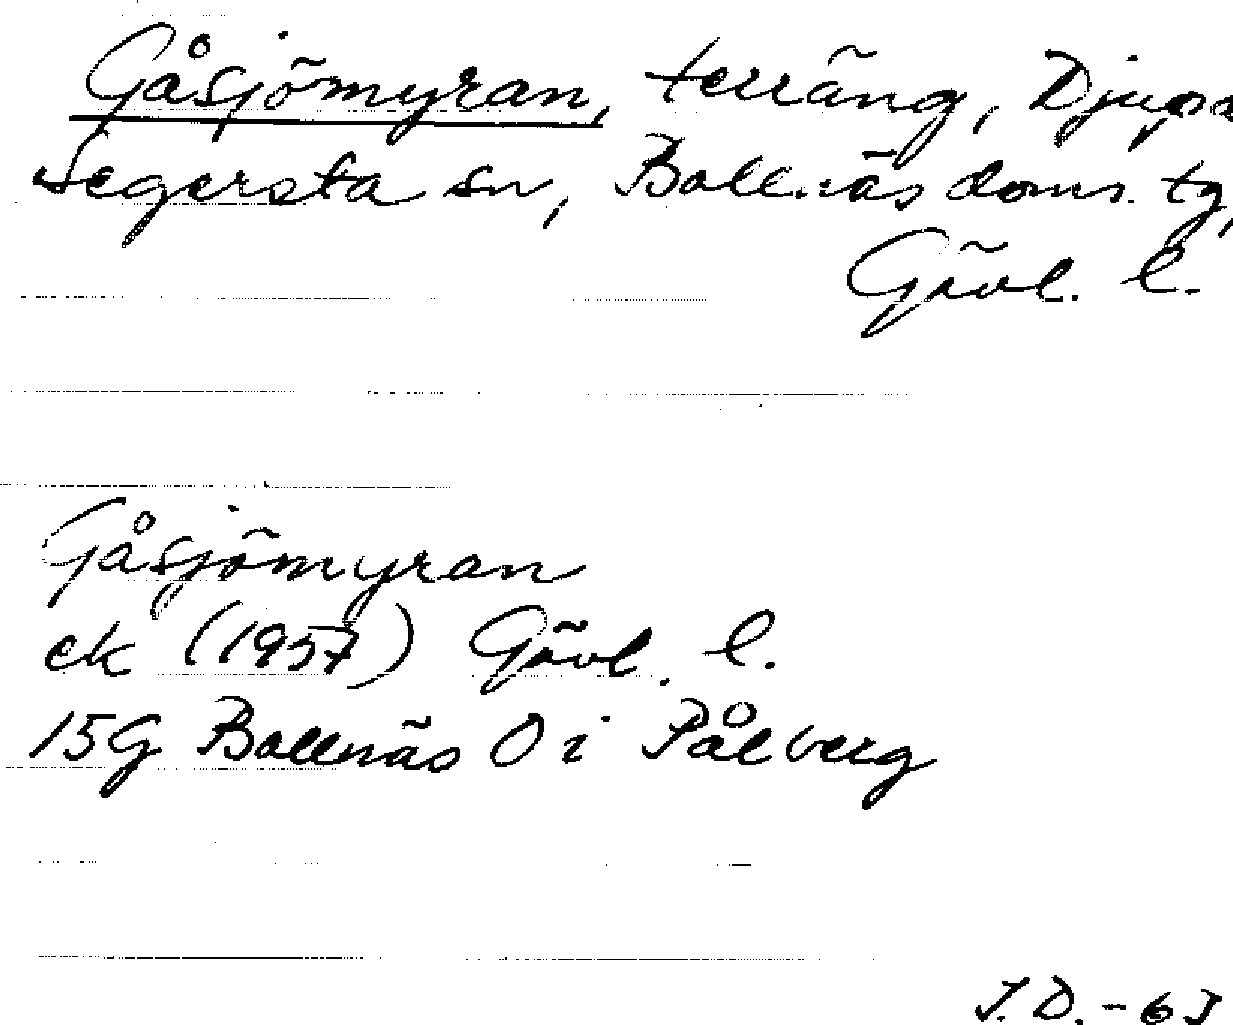 Gåsjömyran, terräng, Djupa
Segersta sn, Bollnäs doms. tg,
Gävl. l.
Gåsjömyran
ek (1957) Gävl. l.
15G Bollnäs O i Pålberg
J.D.-63